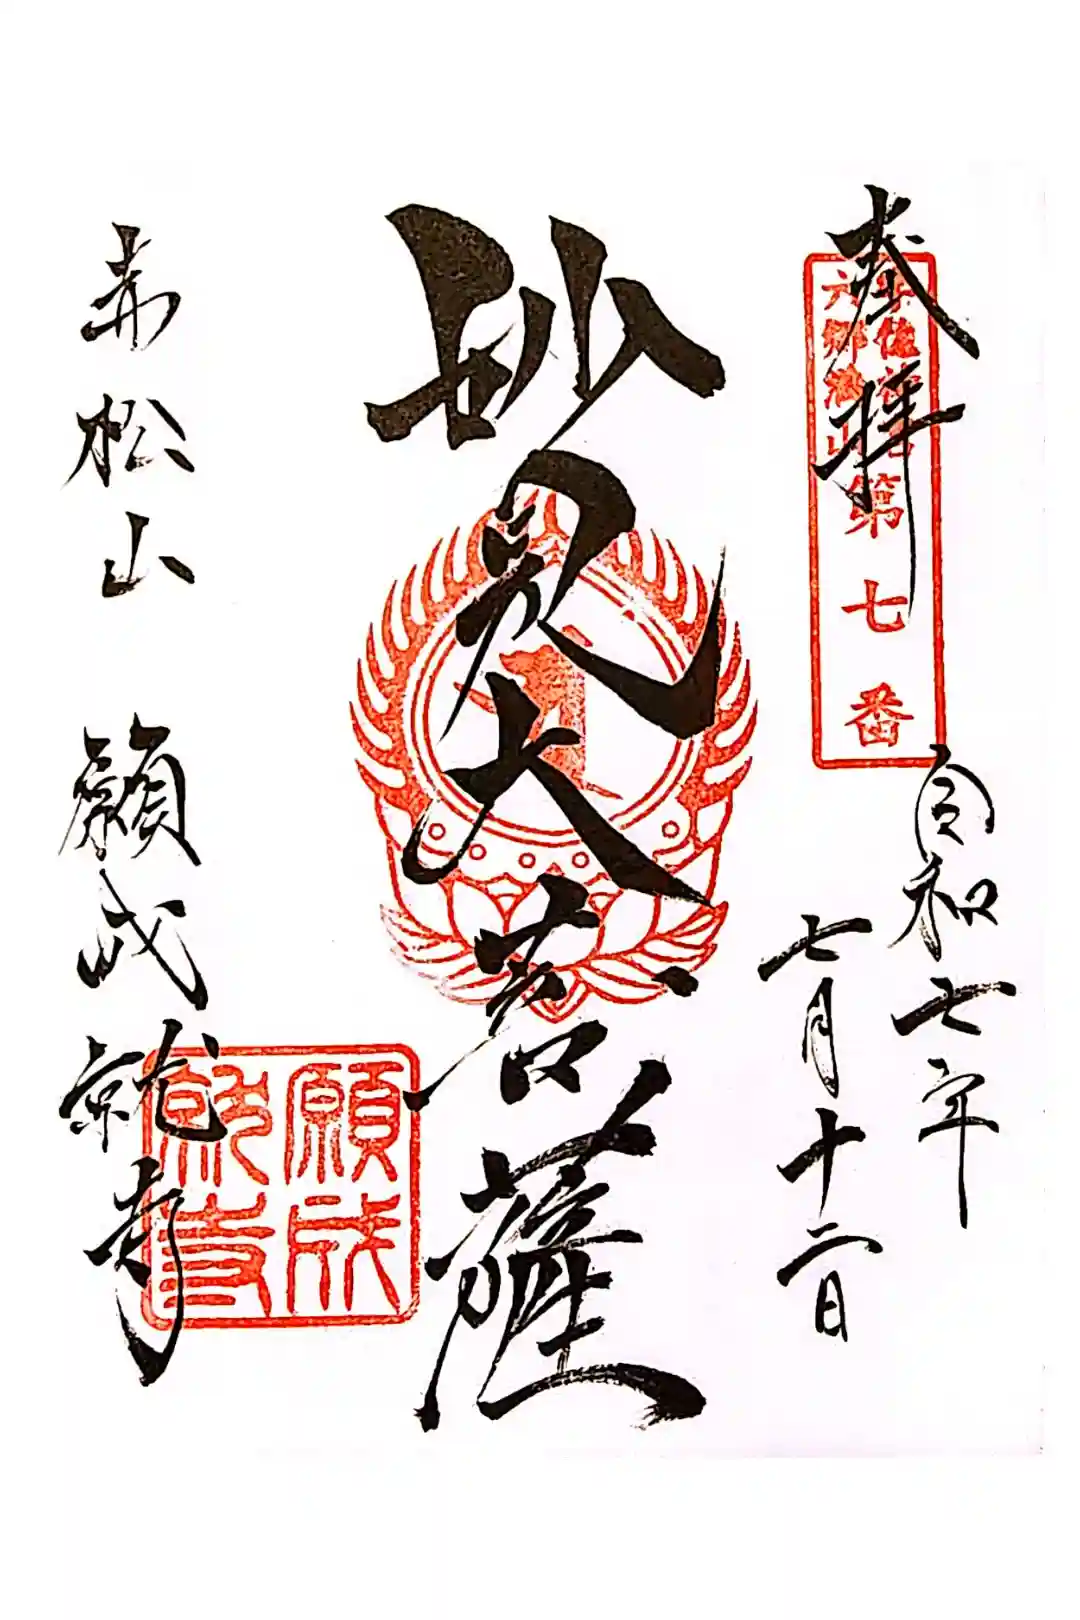 奉拝
宇佐神宮
六郷満山
第七番
令和七年
七月十二日
妙見大菩薩
赤松山 願成就寺
願成
就寺